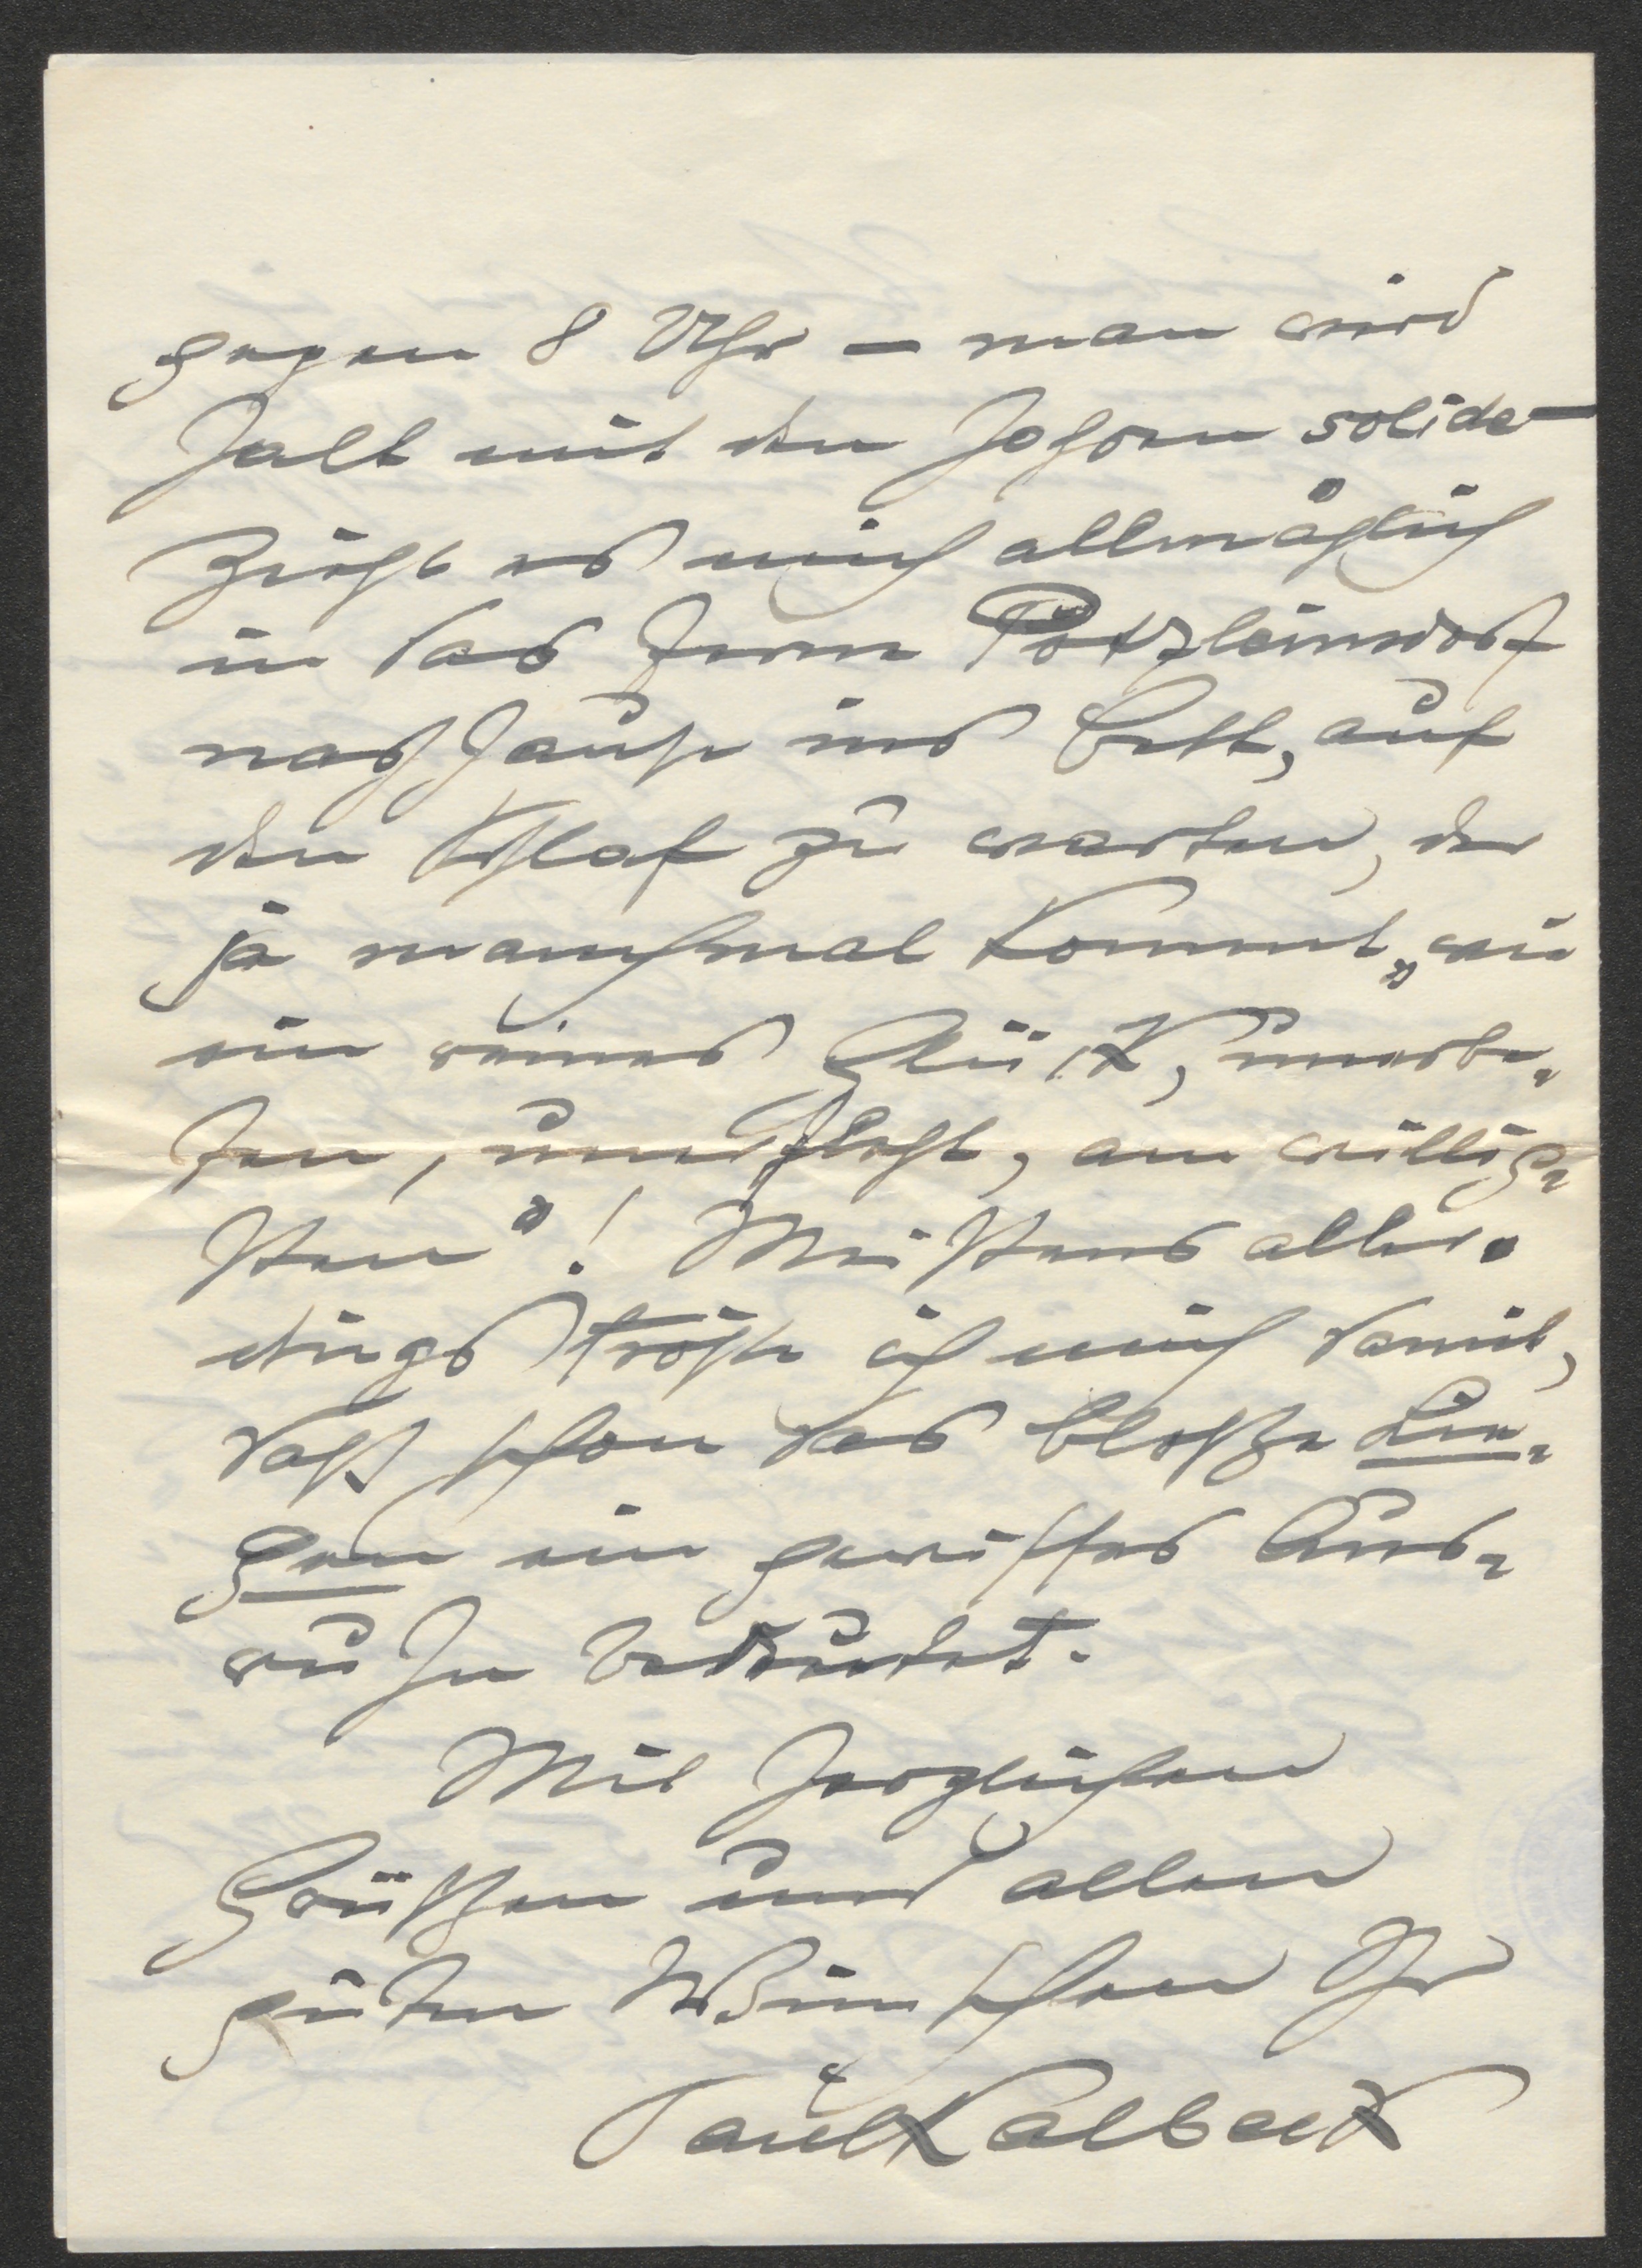 gegen 8 Uhr — man wird
halt mit den Jahren solide —
zieht es mich allmählich
in das ferne Pötzleinsdorf
nach Hause ins Bett, auf
den Schlaf zu warten, der
ja manchmal kommt „wie
ein reines Glück, unerbe-
ten, unerfleht, am willig-
sten“! Meistens aller-
dings tröste ich mich damit,
daß schon das bloße Lie-
gen ein gewisses Aus-
ruhen bedeutet.
Mit herzlichen
Grüßen und allen
guten Wünschen Ihr
Paul Kalbeck